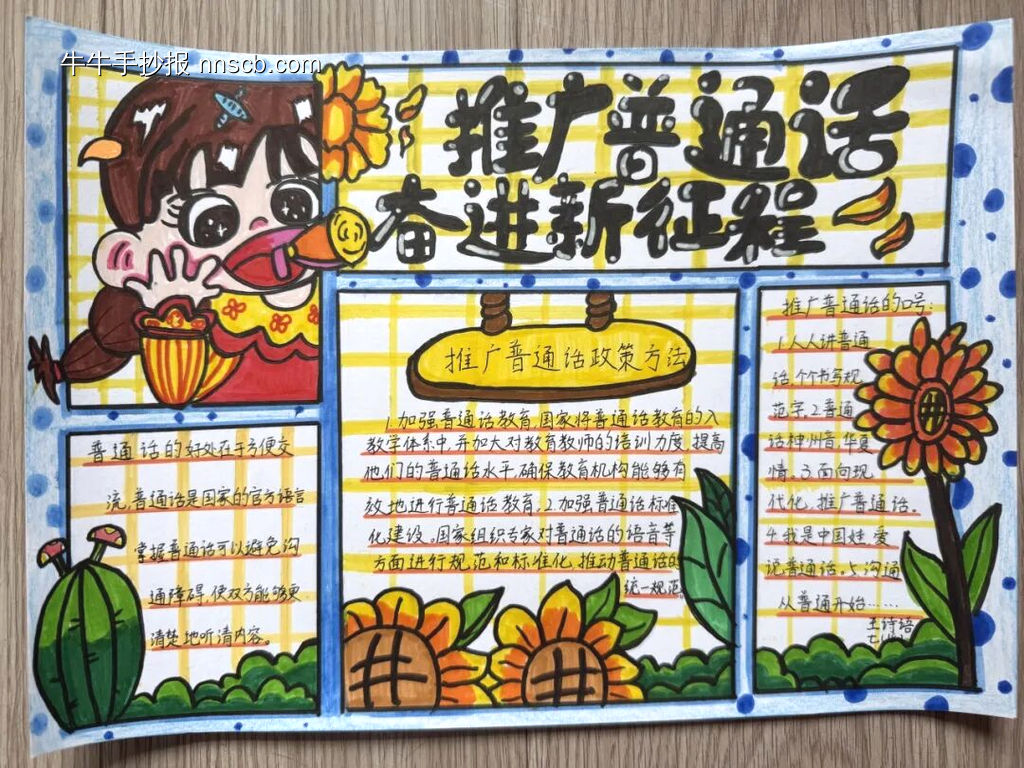 牛牛手抄报 nnscb.com
推广普通话
奋进新征程
普通话的好处在于方便交
流,普通话是国家的官方语言
掌握普通话可以避免沟
通障碍,使双方能够更
清楚地听清内容。
推广普通话政策方法
1.加强普通话教育,国家将普通话教育的入
教学体系中,并加大对教育教师的培训力度,提高
他们的普通话水平,确保教育机构能够有
放地进行普通话教育,2.加强普通话标准
化建设。国家组织专家对普通话的语音等
方面进行规范和标准化,推动普通话的
统一规范。
推广普通话的口号:
1.人人讲普通
话,个个书写规
范字,2.普通
话神州音,华夏
情。3.面向现
代化,推广普通话。
4.我是中国娃,爱
说普通话。5.沟通
从普通开始……
王诗语